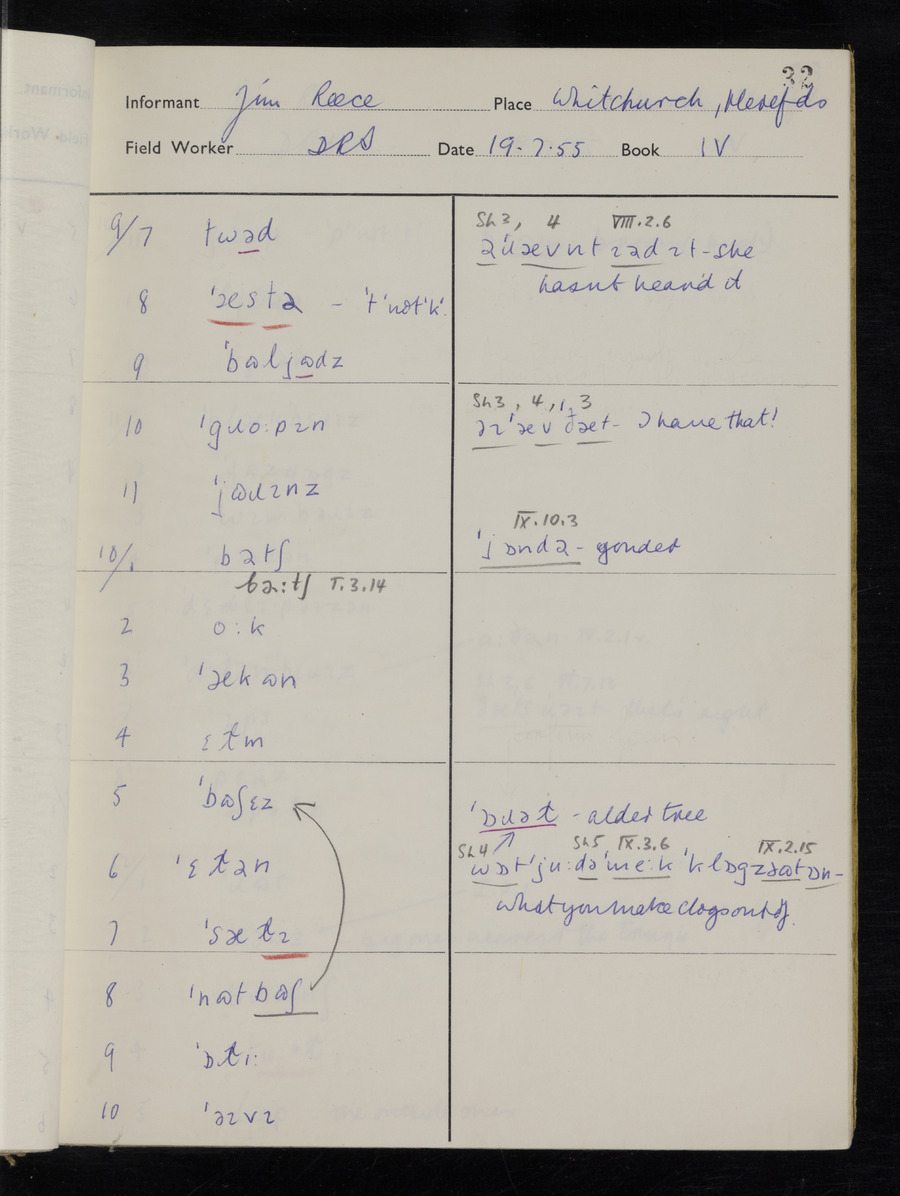 32
Informant Jim Reece Place Whitchurch, Herefds
Field Worker DRS Date 19.7.55 Book IV
9/7 twəd
8 'æstə – 't'nɒt'k'
9 'bɷljɷdz
10 'gɹo:pɪn
11 'jɷɹɪnz
10/1 bətʃ
bə:tʃ I.3.14
2 o:k
3 'ækɷn
4 ɛɫm
5 'bɷʃɛz
6 'ɛɫən
7 'sæɫɪ
8 'nɷtbɷʃ
9 'ɒɫi:
10 'əɪvɪ
Sh 3, 4 VIII.2.6
ə'ɹævnt ɪəd ɪt – she
hasn't heard it
Sh 3, 4, 1, 3
əɪ'æv ðæt – I have that!
IX.10.3
'jɒndə – yonder
'ɒɹəɫ – alder tree
Sh 4 Sh 5 IX.3.6 IX.2.15
wɒt'ju:də'me:k'klɒgzəɷtɒn –
what you make clogs out of.